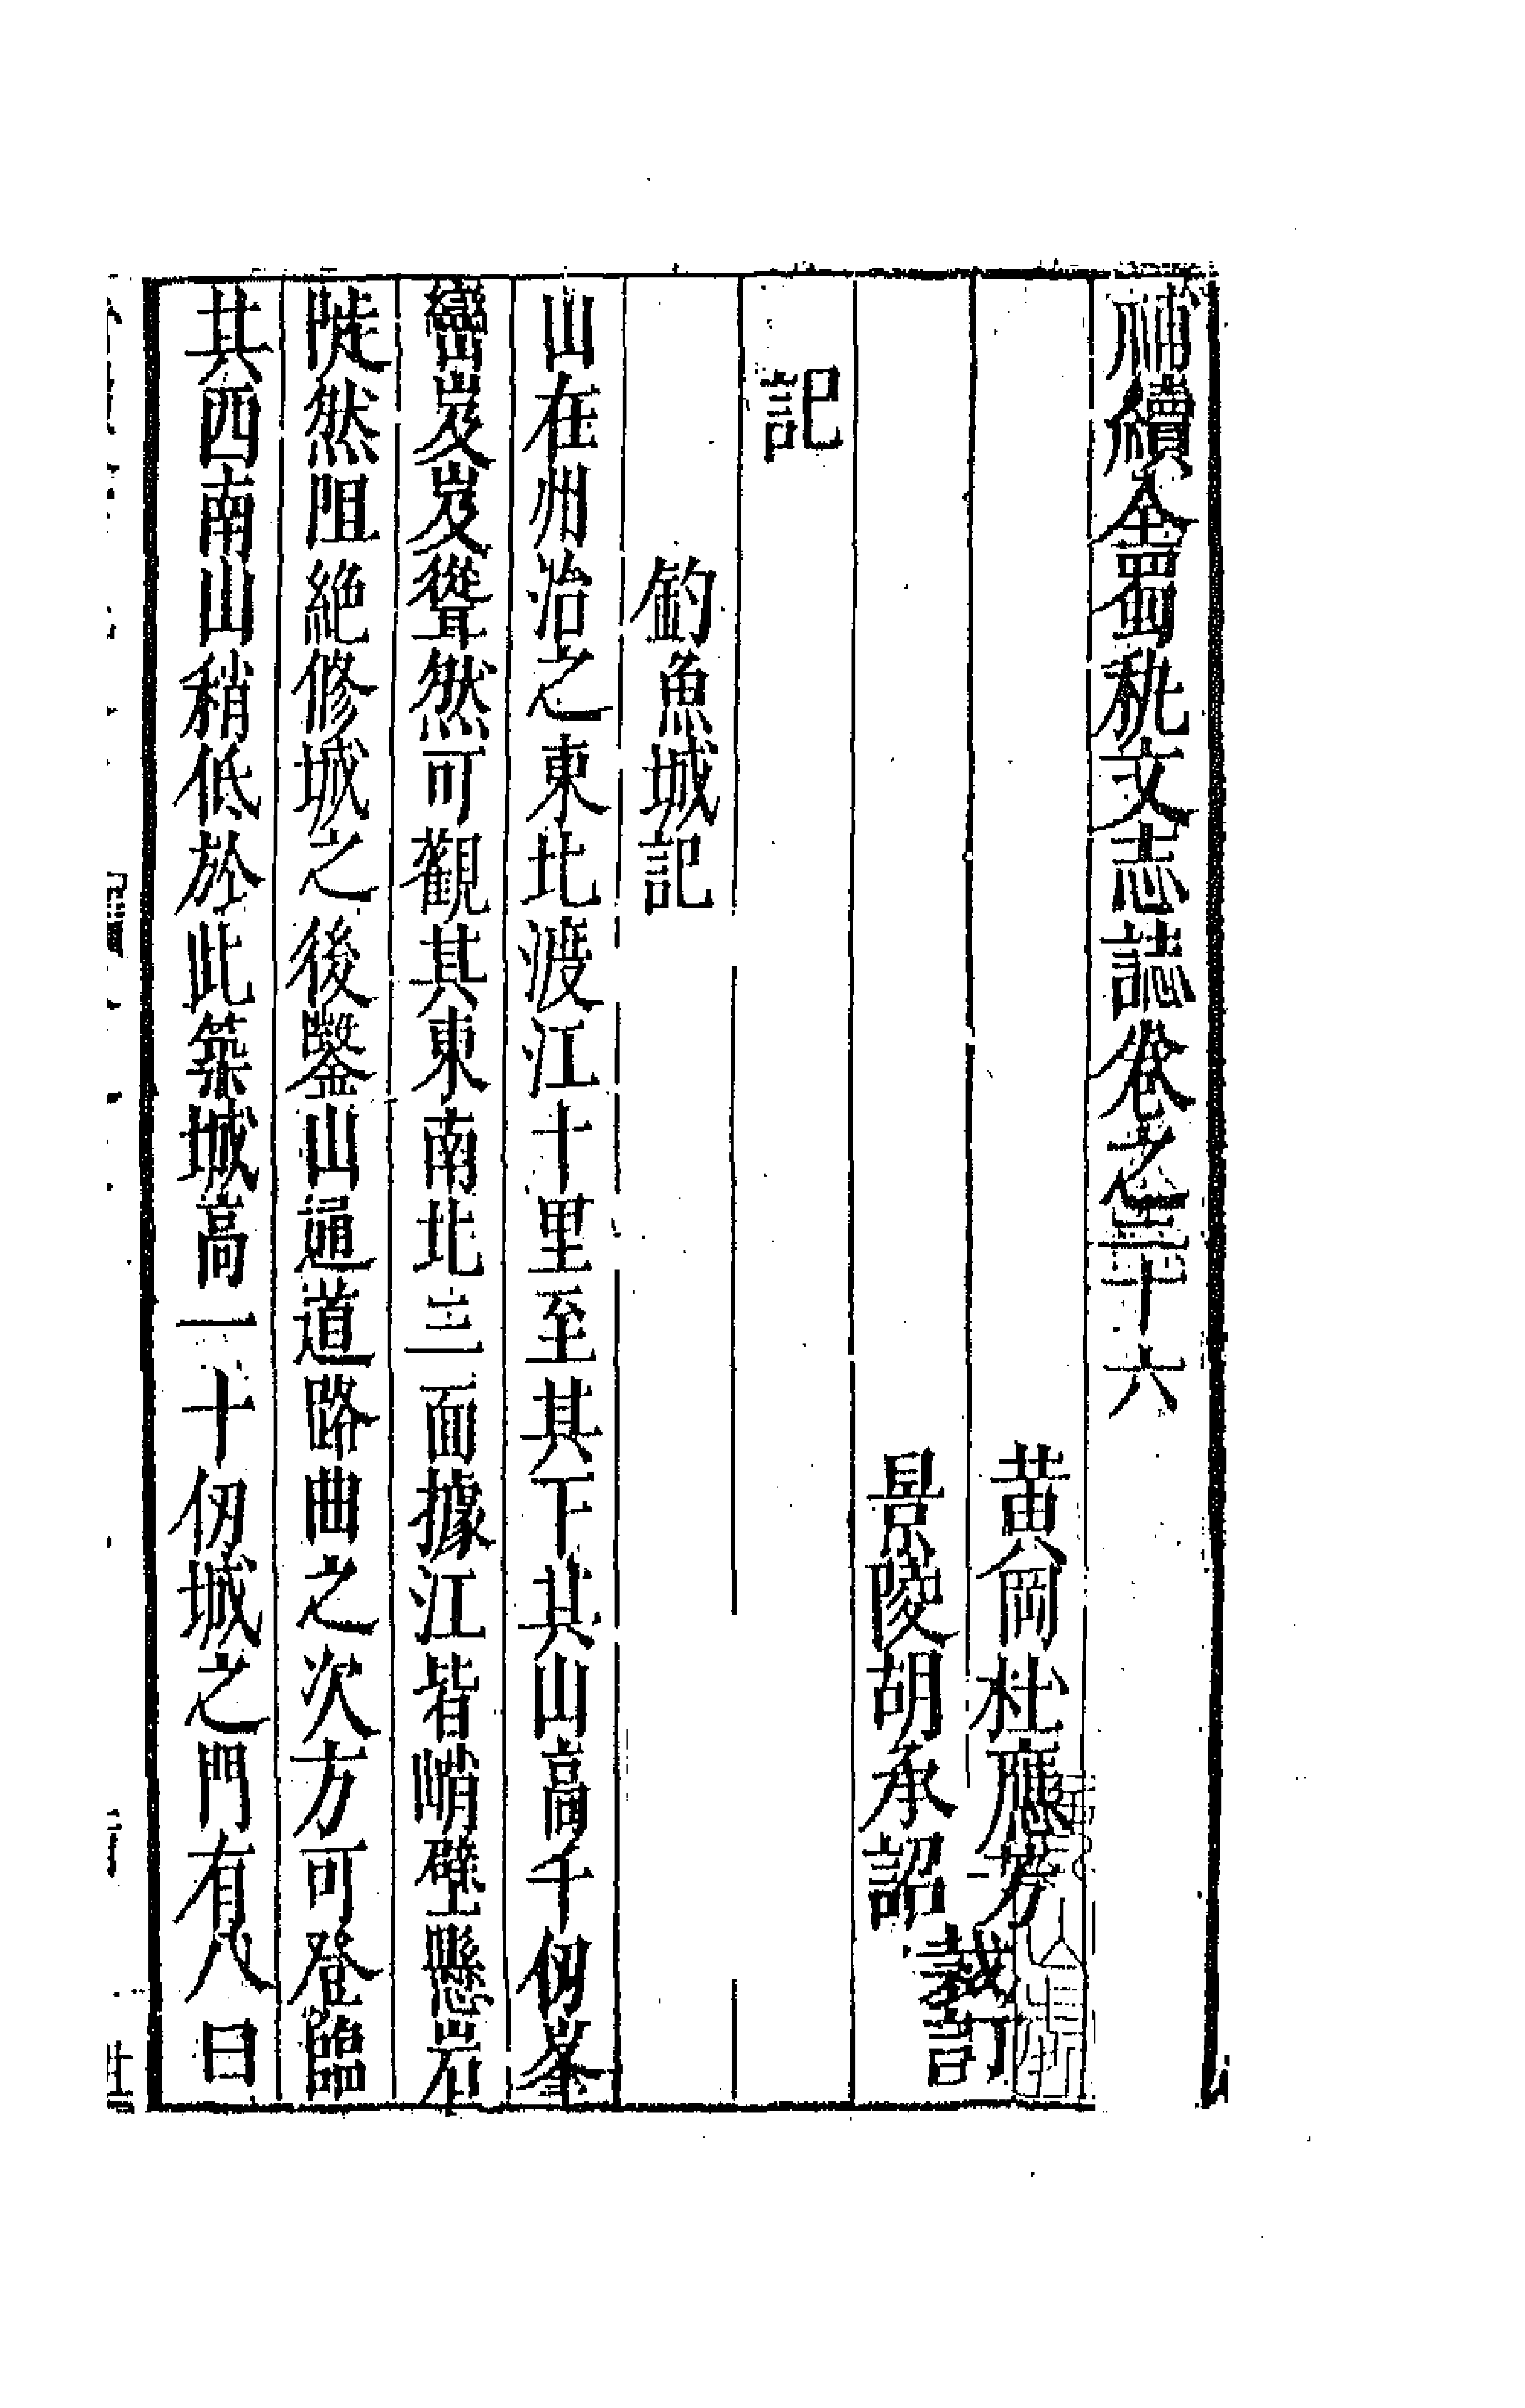 補續全蜀秇文志誌卷之十六
黃岡杜應芳
景陵胡承詔
訂
記
釣魚城記
山在州治之東北渡江十里至其下其山高千仞峯
巒岌岌聳然可觀其東南北三面據江皆峭壁懸岩
陡然阻絶修城之後鑿山通道路曲之次方可登臨
其西南山稍低於此築城高一十仞城之門有八曰